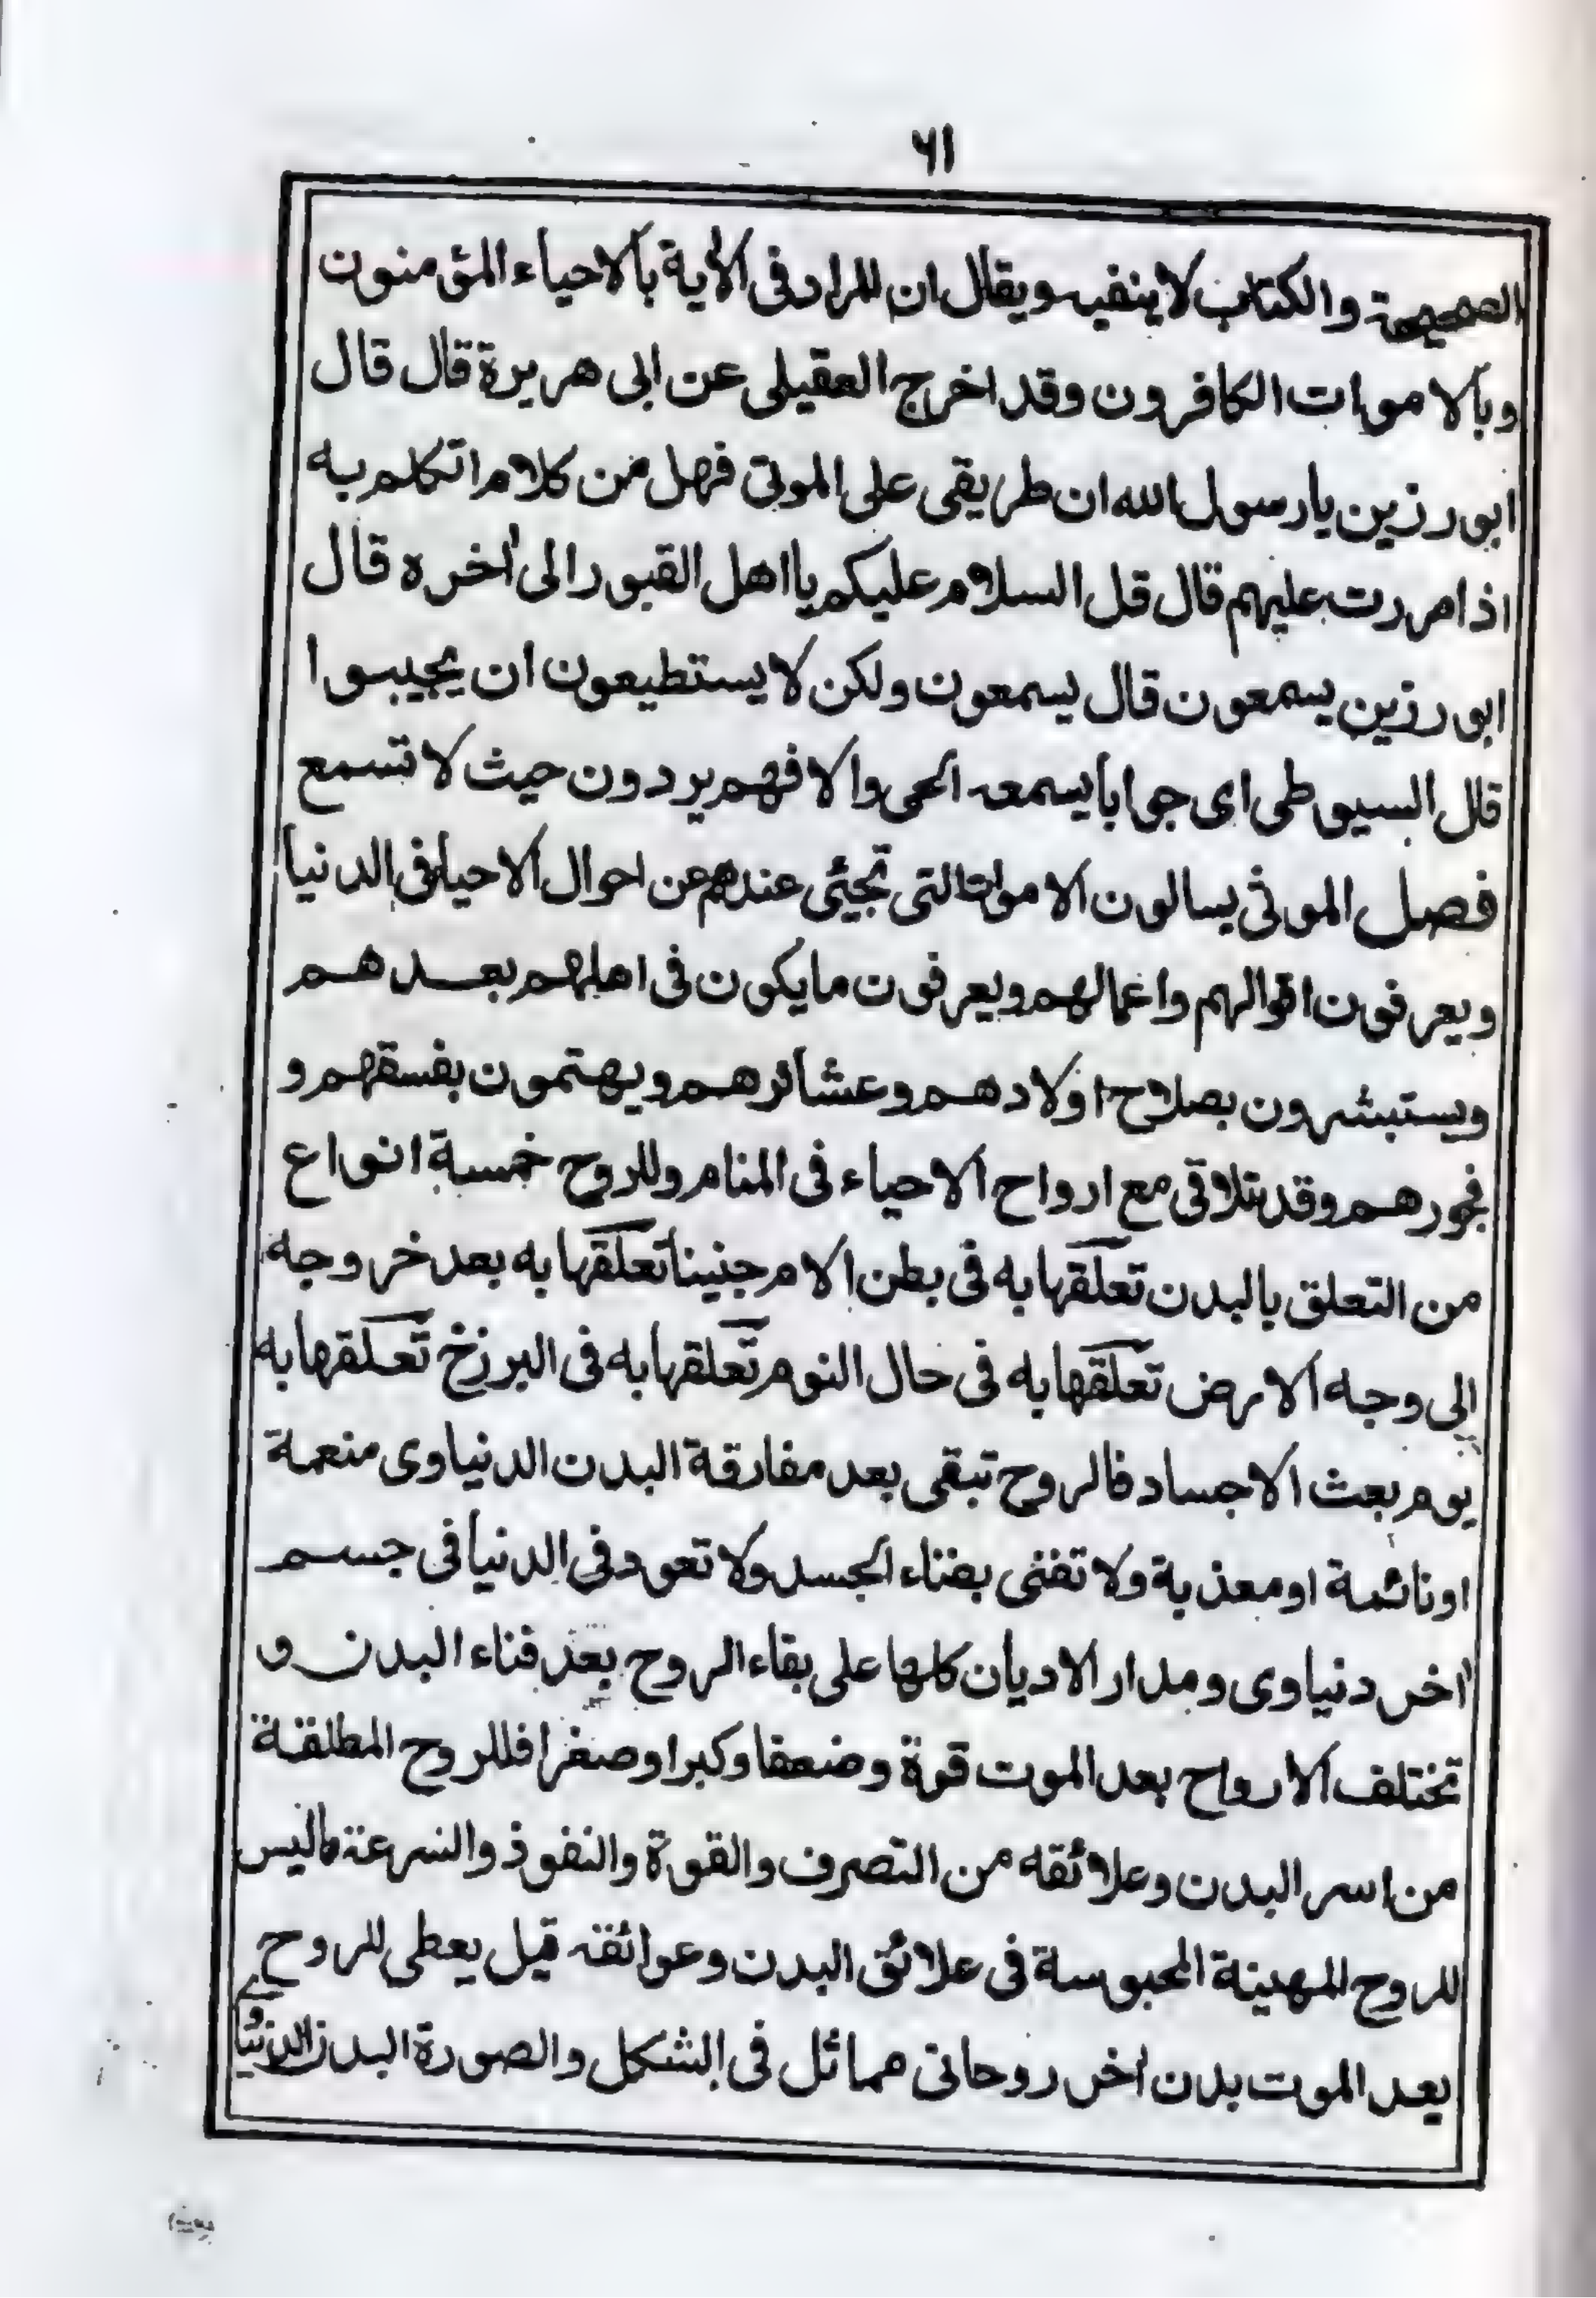 ٦١
الصحيحة والكتاب لا ينفيه ويقال ان المراد فى الأية بالاحياء المؤمنون
وبالاموات الكافرون وقد اخرج العقيلى عن ابى هريرة قال قال
ابورزين يارسول الله ان طريقى على الموتى فهل من كلام اتكلم به
اذا مررت عليهم قال قل السلام عليكم يا اهل القبور الى أخره قال
ابورزين يسمعون قال يسمعون ولكن لا يستطيعون ان يجيبوا
قال السيوطى اى جوابا يسمعه الحى والا فهم يردون حيث لا تسمع
فصل الموتى يسالون الاموات التى تجيئى عندهم عن احوال الاحياء فى الدنيا
ويعرفون اقوالهم واعمالهم ويعرفون ما يكون فى اهلهم بعدهم
ويستبشرون بصلاح اولادهم وعشائرهم ويهتمون بفسقهم و
فجورهم وقد يتلاقى مع ارواح الاحياء فى المنام وللروح خمسة انواع
من التعلق بالبدن تعلقها به فى بطن الام جنينا تعلقها به بعد خروجه
إلى وجه الارض تعلقها به فى حال النوم تعلقها به فى البرزخ تعلقها به
يوم بعث الاجساد فالروح تبقى بعد مفارقة البدن الدنياوى منعمة
او نائمة او معذبة ولا تفنى بفناء الجسد ولا تعود فى الدنيا فى جسم
أخر دنياوى ومدار الاديان كلها على بقاء الروح بعد فناء البدن و
تختلف الارواح بعد الموت قوة وضعفا وكبرا وصغرا فللروح المطلقة
من اسر البدن وعلائقه من التصرف والقوة والنفوذ والسرعة ماليس
للروح المهينة المحبوسة فى علائق البدن وعوائقه قيل يعطى للروح
بعد الموت بدن أخر روحانى مماثل فى الشكل والصورة البدن الدنياوى